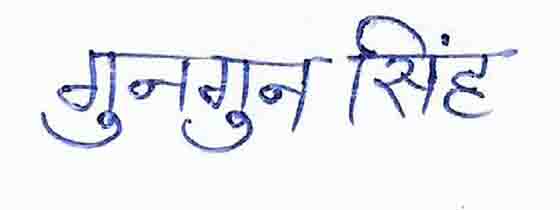 गुनगुन सिंह